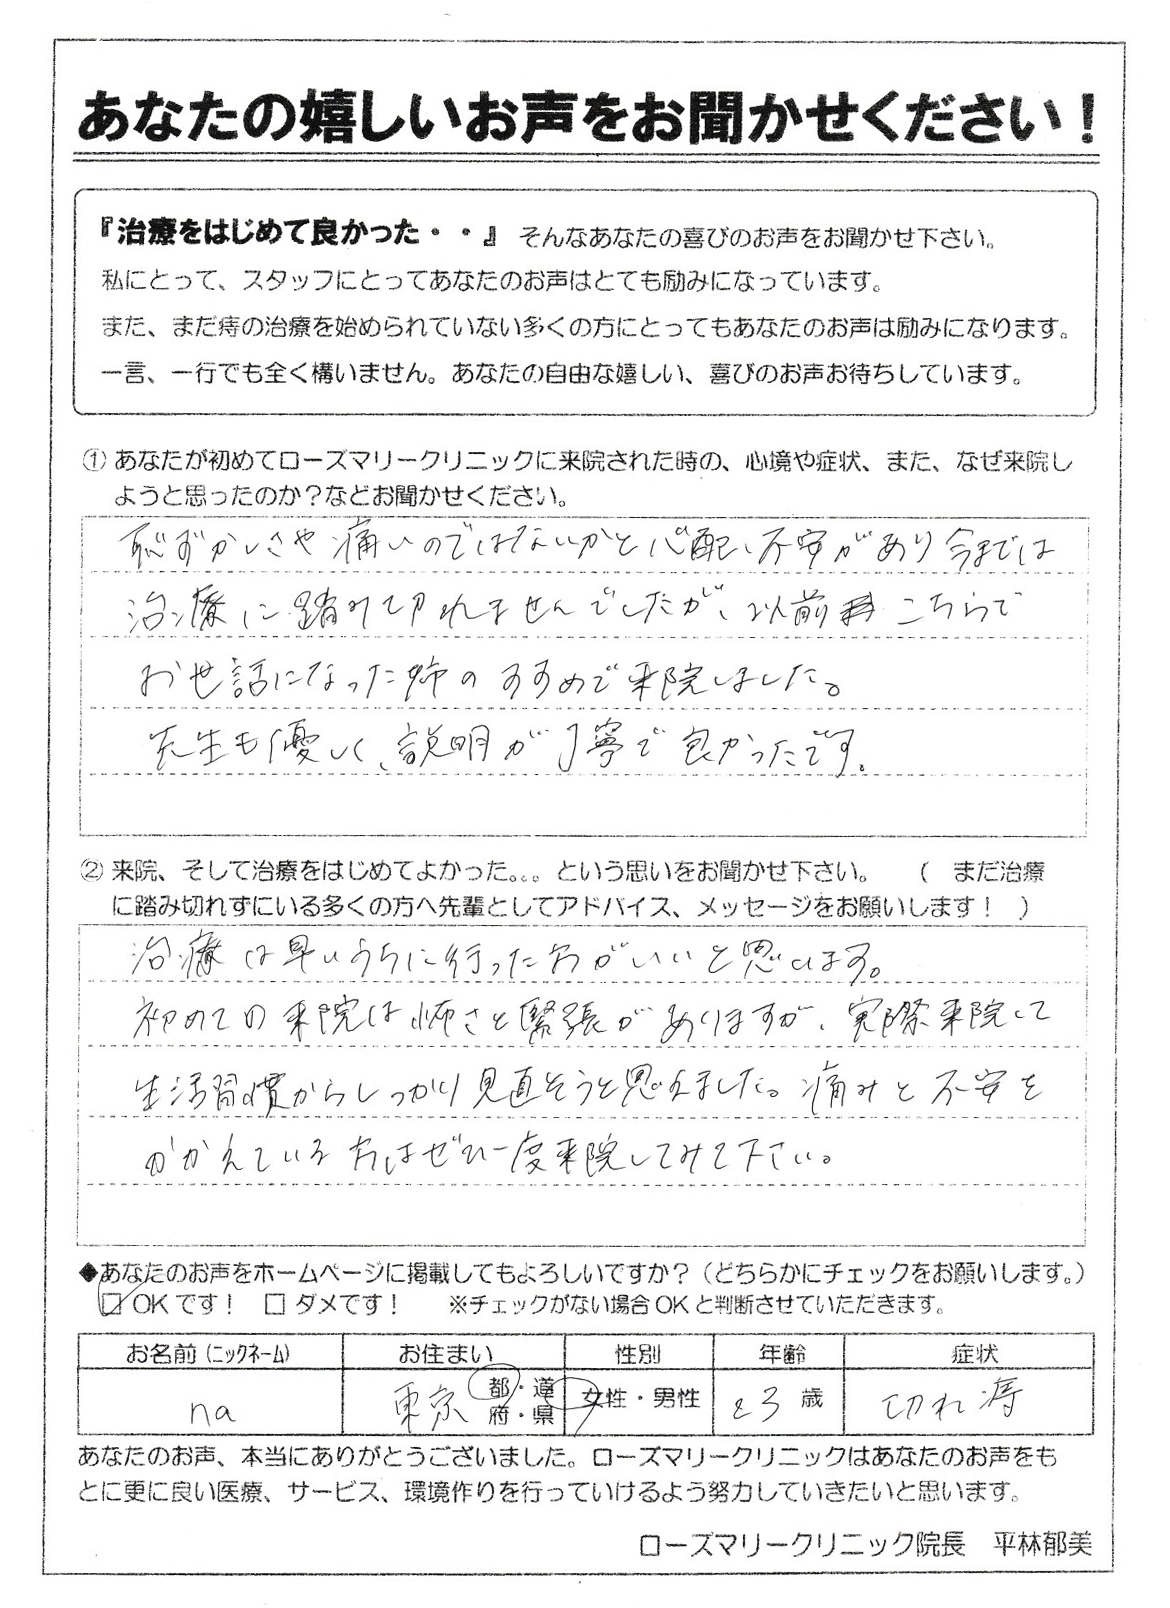 あなたの嬉しいお声をお聞かせください！
『治療をはじめて良かった・・』 そんなあなたの喜びのお声をお聞かせ下さい。
私にとって、スタッフにとってあなたのお声はとても励みになっています。
また、まだ痔の治療を始められていない多くの方にとってもあなたのお声は励みになります。
一言、一行でも全く構いません。あなたの自由な嬉しい、喜びのお声お待ちしています。
① あなたが初めてローズマリークリニックに来院された時の、心境や症状、また、なぜ来院し
ようと思ったのか？などお聞かせください。
恥ずかしさや痛いのではないかと心配、不安があり今までは
治療に踏みて切れませんでしたが、以前 こちらで
お世話になった姉のすすめで来院しました。
先生も優しく、説明が丁寧で良かったです。
② 来院、そして治療をはじめてよかった。。。という思いをお聞かせ下さい。 （ まだ治療
に踏み切れずにいる多くの方へ先輩としてアドバイス、メッセージをお願いします！ ）
治療は早いうちに行った方がいいと思います。
初めての来院は怖さと緊張がありますが、実際来院して
生活習慣からしっかり見直そうと思えました。痛みと不安を
かかえている方はぜひ一度来院してみて下さい。
◆あなたのお声をホームページに掲載してもよろしいですか？（どちらかにチェックをお願いします。）
☑ OKです！ □ ダメです！ ※チェックがない場合OKと判断させていただきます。
お名前（ニックネーム） お住まい 性別 年齢 症状
na 東京 都・道府・県 女性・男性 23歳 切れ痔
あなたのお声、本当にありがとうございました。ローズマリークリニックはあなたのお声をも
とに更に良い医療、サービス、環境作りを行っていけるよう努力していきたいと思います。
ローズマリークリニック院長 平林郁美